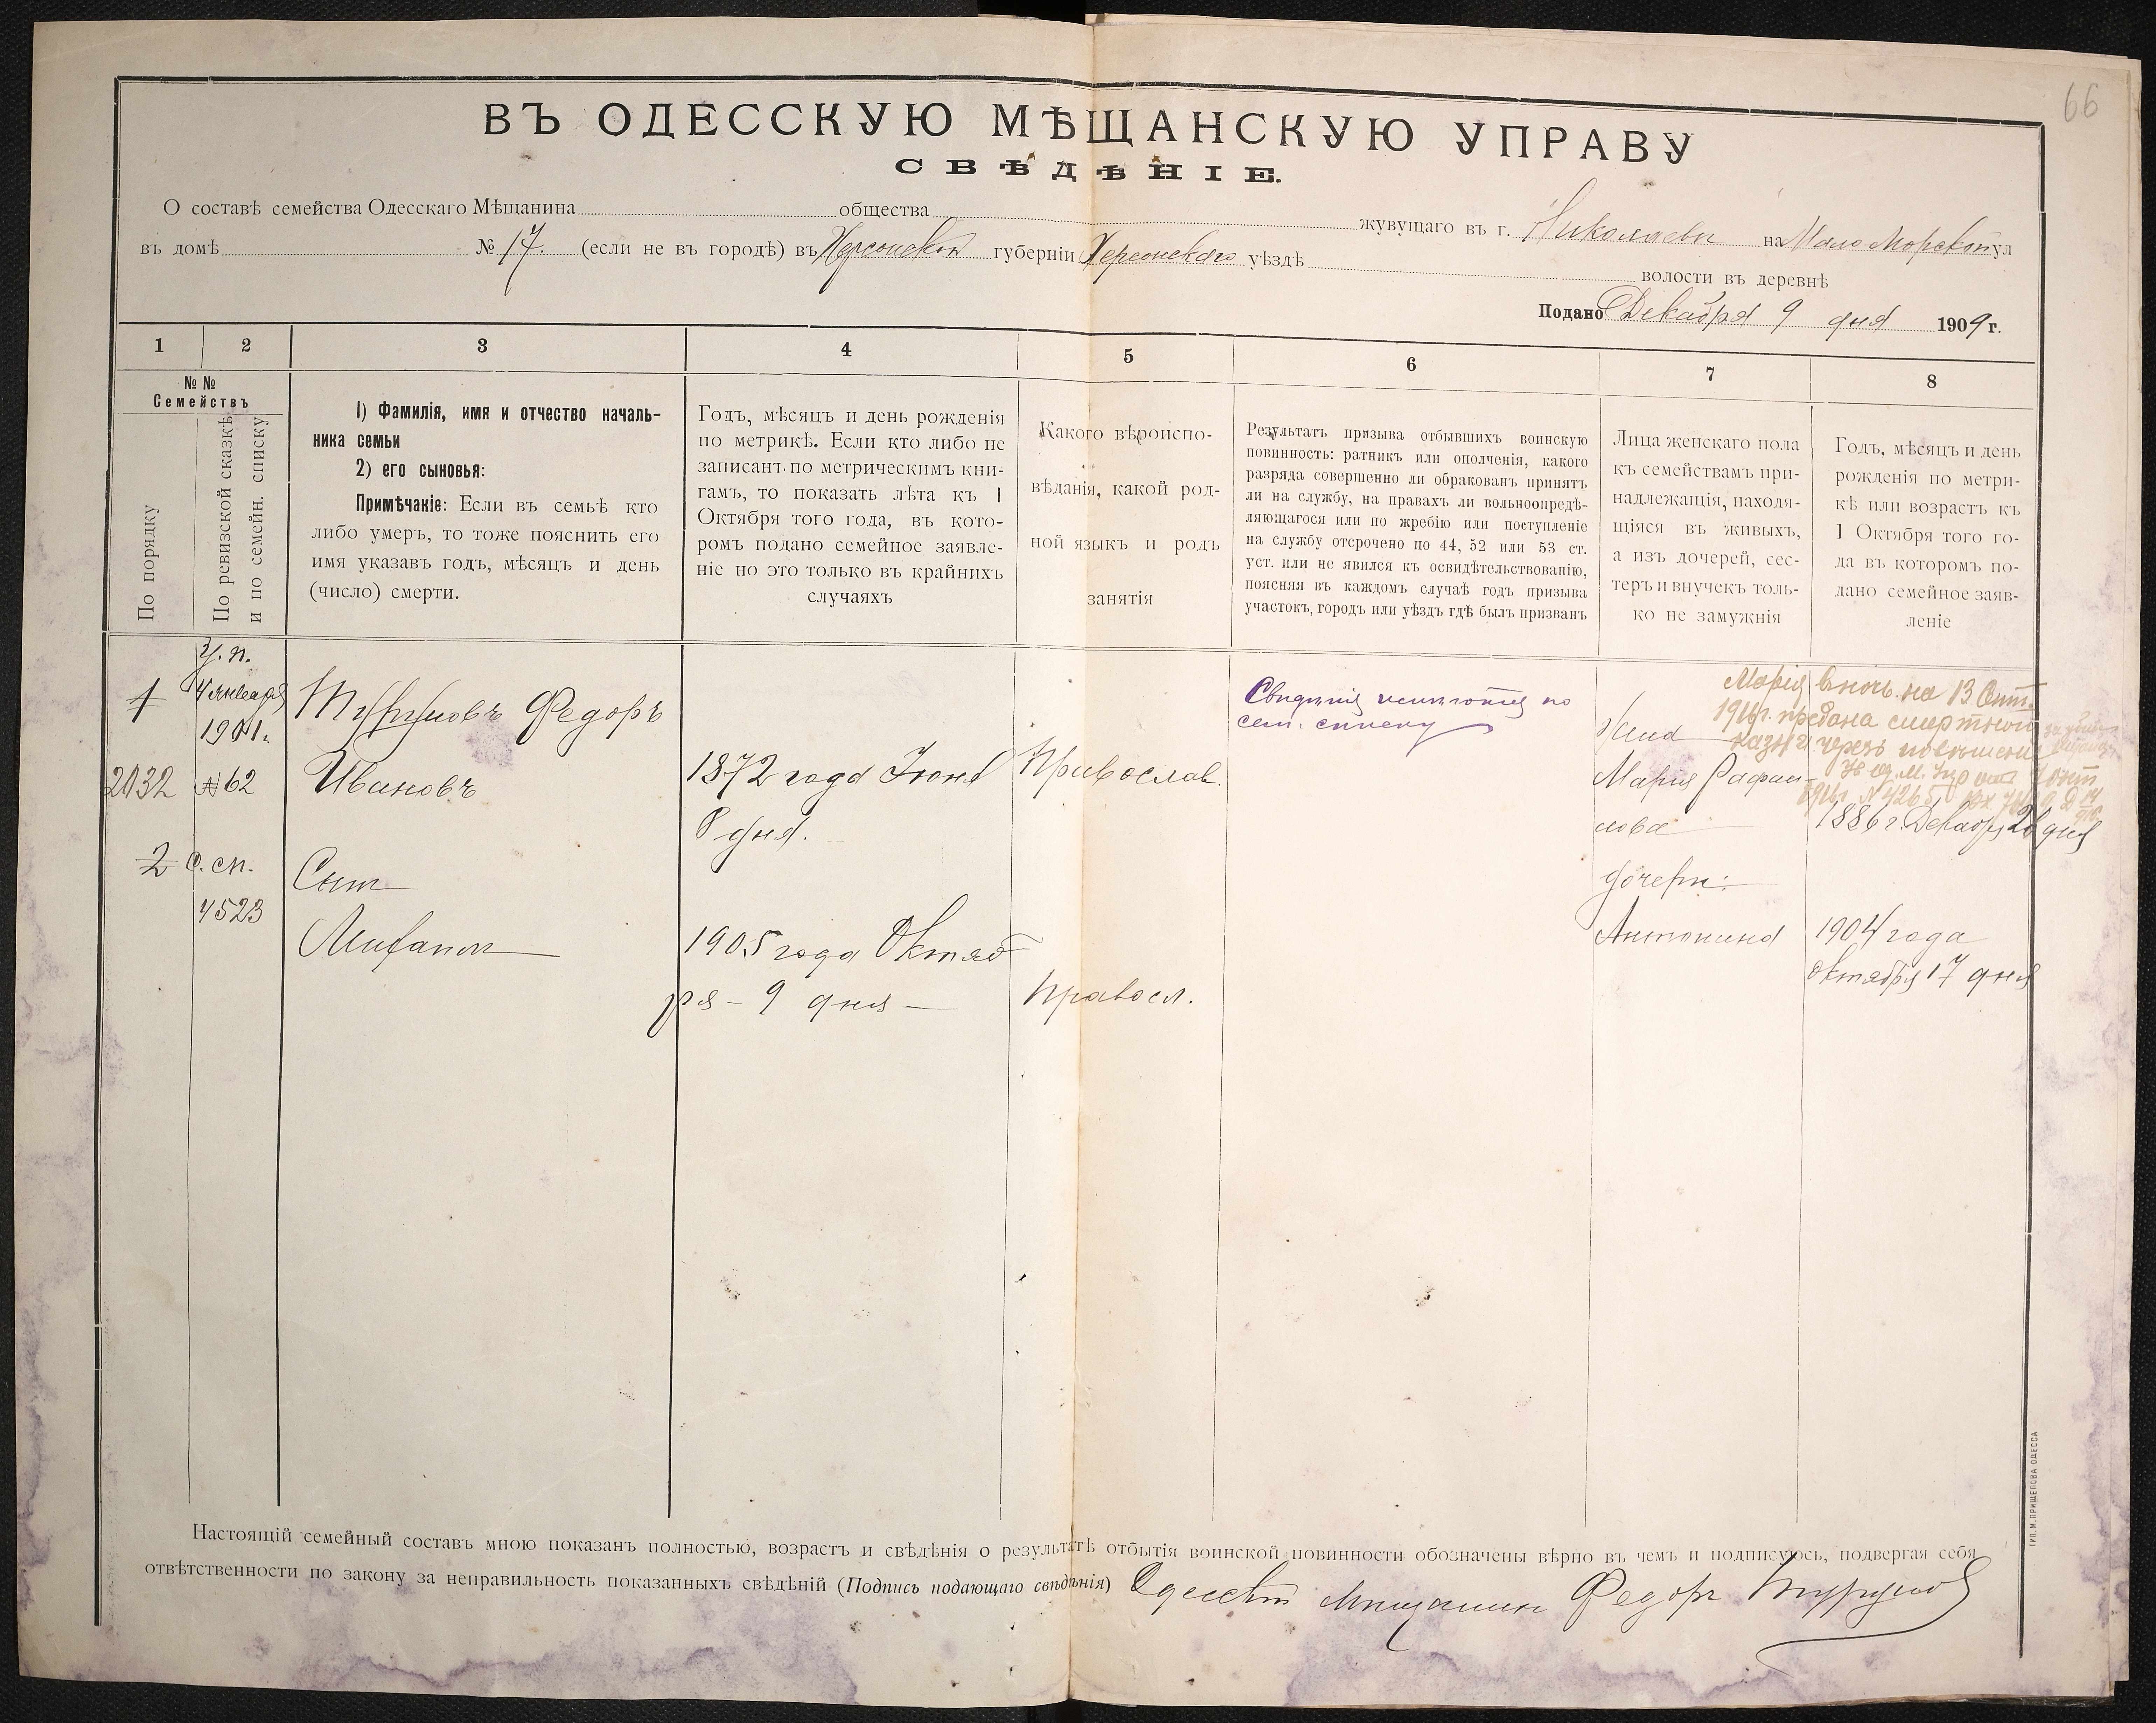 66
ВЪ ОДЕССКУЮ МѢЩАНСКУЮ УПРАВУ
СВѢДѢНІЕ.
О составѣ семейства Одесскаго Мѣщанина общества жувущаго въ г. Николаевѣ на Мало Морской ул
въ домѣ № 17. (если не въ городѣ) въ Херсонской губерніи Херсонскаго уѣздѣ волости въ деревнѣ
Подано Декабря 9 дня 1909 г.
1 2 3 4 5 6 7 8
№ №
Семействъ
По порядку
По ревизской сказкѣ
и по семейн. списку
1) Фамилія, имя и отчество началь-
ника семьи
2) его сыновья:
Примѣчакіе: Если въ семьѣ кто
либо умеръ, то тоже пояснить его
имя указавъ годъ, мѣсяцъ и день
(число) смерти.
Годъ, мѣсяцъ и день рожденія
по метрикѣ. Если кто либо не
записанъ по метрическимъ кни-
гамъ, то показать лѣта къ 1
Октября того года, въ кото-
ромъ подано семейное заявле-
ніе но это только въ крайнихъ
случаяхъ
Какого вѣроиспо-
вѣданія, какой род-
ной языкъ и родъ
занятія
Результатъ призыва отбывшихъ воинскую
повинность: ратникъ или ополченія, какого
разряда совершенно ли обракованъ принятъ
ли на службу, на правахъ ли вольноопредѣ-
ляющагося или по жребію или поступленіе
на службу отсрочено по 44, 52 или 53 ст.
уст. или не явился къ освидѣтельствованію,
поясняя въ каждомъ случаѣ годъ призыва
участокъ, городъ или уѣздъ гдѣ былъ призванъ
Лица женскаго пола
къ семействамъ при-
надлежащія, находя-
щіяся въ живыхъ,
а изъ дочерей, сес-
теръ и внучекъ толь-
ко не замужнія
Годъ, мѣсяцъ и день
рожденія по метри-
кѣ или возрастъ къ
1 Октября того го-
да въ которомъ по-
дано семейное заяв-
леніе
1
2032
2
У. п.
4 января
1901г.
№ 62
С. сп.
4523
Федоръ
Ивановъ
Сынъ
Митрофанъ
1872 года Іюня
8 дня.
1905 года Октяб
ря - 9 дня
Православ.
Правосл.
Свѣдѣнія имѣются по
сем. списку
Жена
Марія
дочери:
Антонина
Марія въ ночь на 13 Сент.
1911г. предана смертной
казни черезъ повѣшеніе
1886 г. Декабря 26 дня
1904 года
октября 17 дня
Настоящій семейный составъ мною показанъ полностью, возрастъ и свѣдѣнія о результатѣ отбытія воинской повинности обозначены вѣрно въ чемъ и подписуюсь, подвергая себя
отвѣтственности по закону за неправильность показанныхъ свѣдѣній (Подпись подающаго свѣдѣнія) Одесскій Мѣщанинъ Федоръ
ТИП. М. ПРИЩЕПОВА ОДЕССА